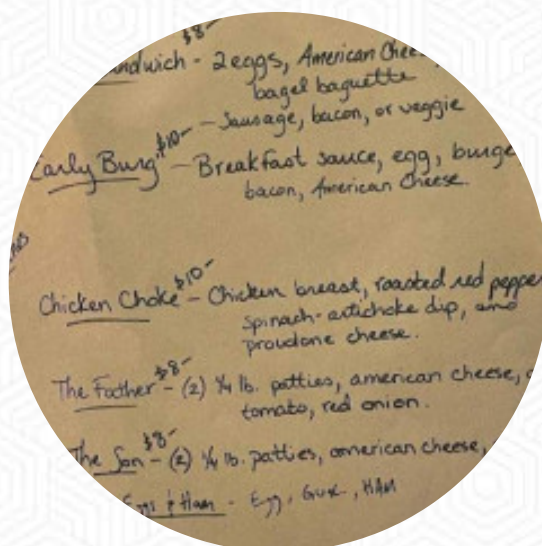 $8-
ndwich - 2 eggs, American Chee
bagel baguette
- Sausage, bacon, or veggie
$10-
Early Burg. - Breakfast sauce, egg, burge
bacon, American Cheese.
$10-
Chicken Choke - Chicken breast, roasted red pepper
spinach-artichoke dip, and
provolone cheese.
$8-
The Father - (2) 1/4 lb. patties, american cheese,
tomato, red onion.
$8-
The Son - (2) 1/4 lb. patties, american cheese,
Eggs & Ham - Egg, , HAM